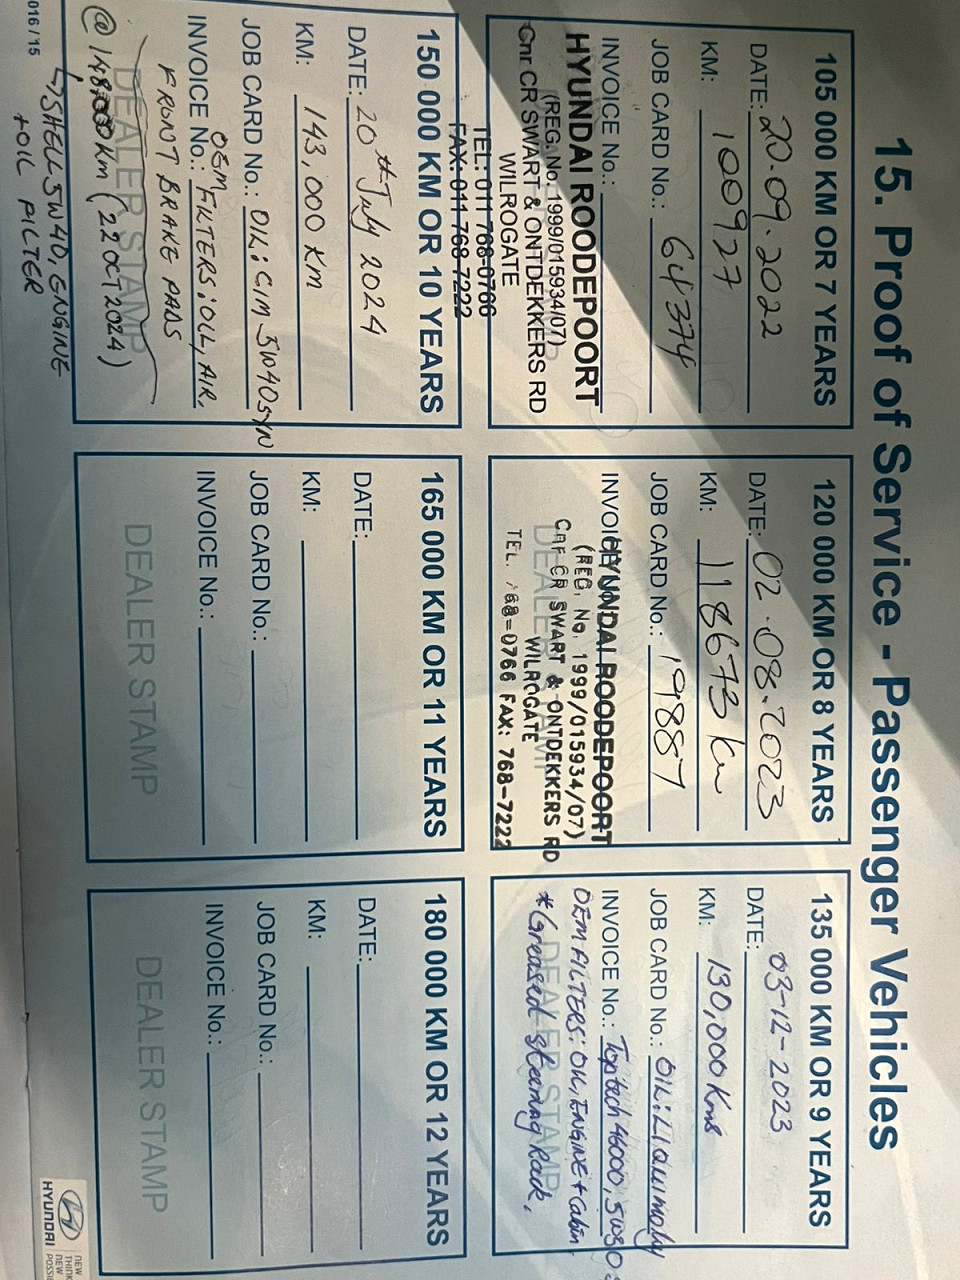 15. Proof of Service - Passenger Vehicles
105 000 KM OR 7 YEARS
DATE: 20.09.2022
KM: 100927
JOB CARD No.: 64374
INVOICE No.:
HYUNDAI ROODEPOORT
(REG. No. 1999/015934/07)
Cnr CR SWART & ONTDEKKERS RD
WILROGATE
TEL: 011 768-0766
FAX: 011 768-7222
120 000 KM OR 8 YEARS
DATE: 02.08.2023
KM: 118673 km
JOB CARD No.: 19887
INVOICE
HYUNDAI ROODEPOORT
(REG. No. 1999/015934/07)
Cnr CR SWART & ONTDEKKERS RD
WILROGATE
TEL. 768-0766 FAX: 768-7222
DEALER STAMP
135 000 KM OR 9 YEARS
DATE: 03-12-2023
KM: 130,000 Kms
JOB CARD No.: OIL: LIQUI moly
INVOICE No.: Toptech 4600, 5W30
OEM FILTERS: OIL, ENGINE + Cabin.
DEALER STAMP
*Greased steering Rack.
150 000 KM OR 10 YEARS
DATE: 20th July 2024
KM: 143,000 km
JOB CARD No.: OIL: GTM 5W40 SYN
INVOICE No.: OEM FILTERS: OIL, AIR,
FRONT BRAKE PADS
DEALER STAMP
@ 148,000 km (22 OCT 2024)
↳ SHELL 5W40, ENGINE
+ OIL FILTER
165 000 KM OR 11 YEARS
DATE:
KM:
JOB CARD No.:
INVOICE No.:
DEALER STAMP
180 000 KM OR 12 YEARS
DATE:
KM:
JOB CARD No.:
INVOICE No.:
DEALER STAMP
016 / 15
HYUNDAI
NEW
THINK
NEW